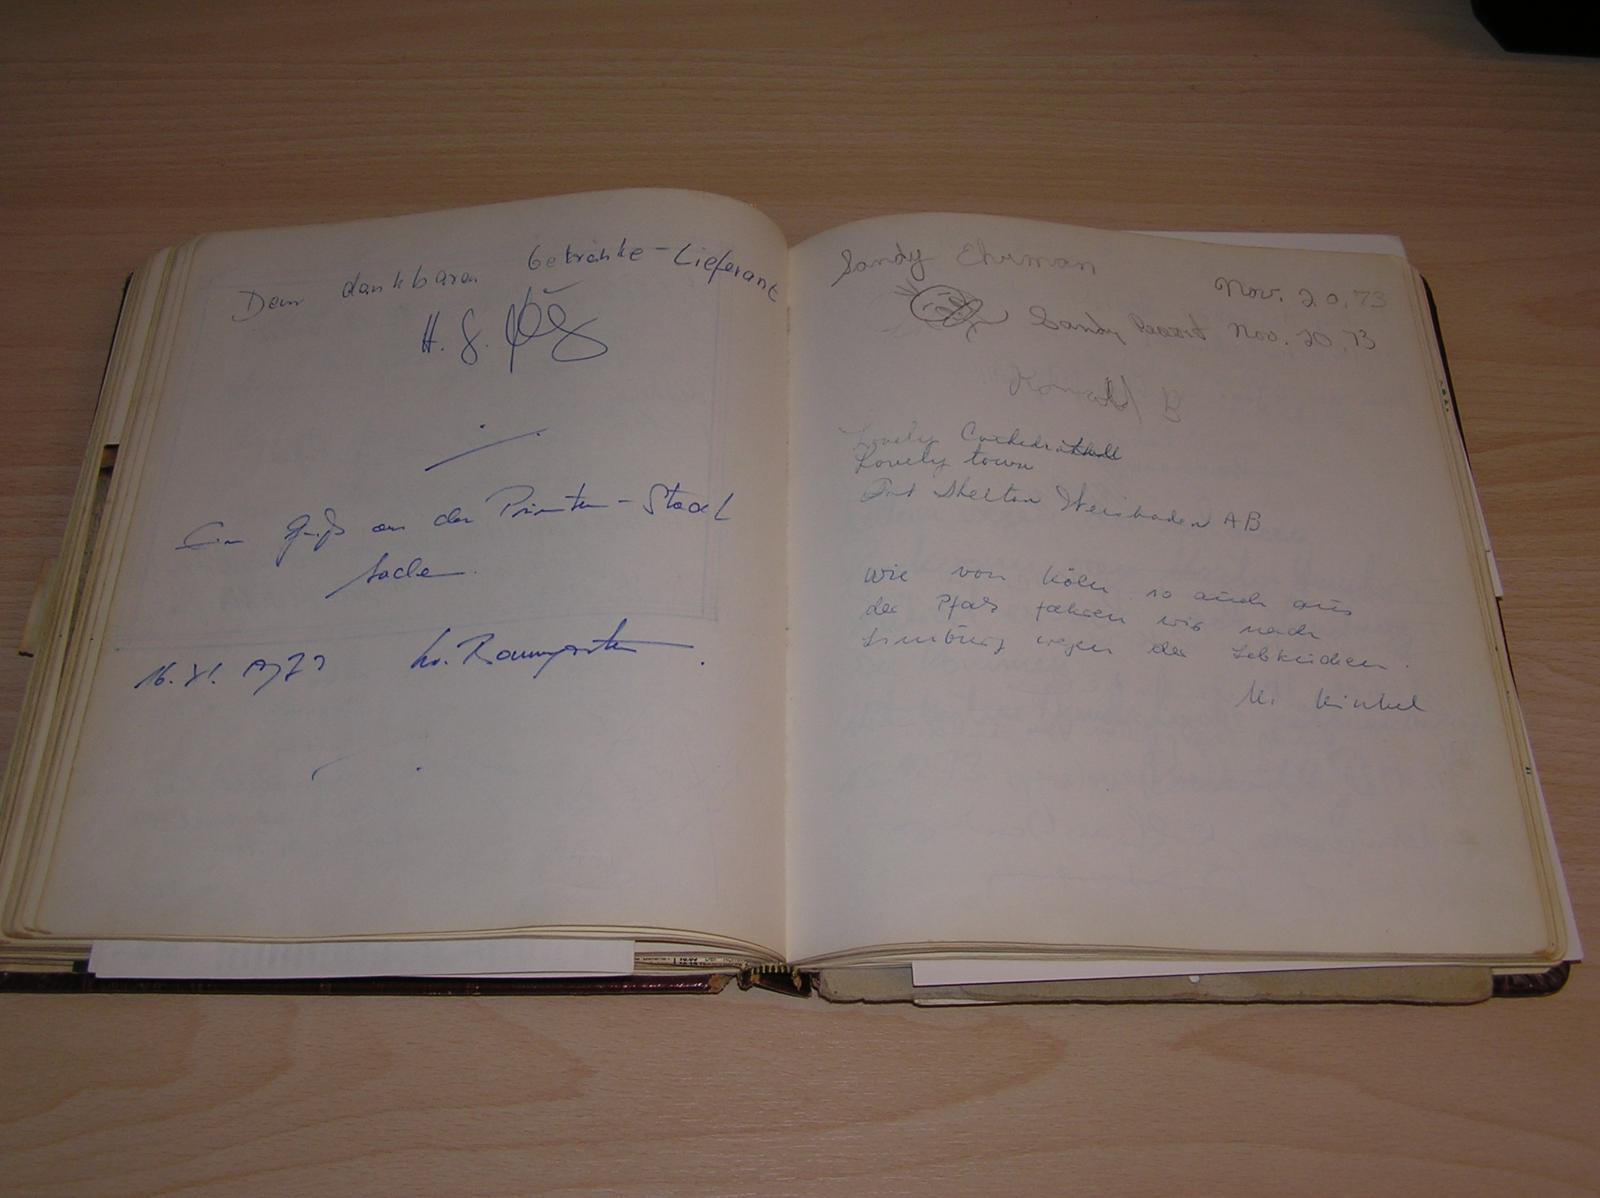 Dem dankbaren Getränke-Lieferant
H. G.
Ein Gruß an die Printen-Stadt
16. XI. 1973 Baumgarten
Sandy Ehrman
Nov. 20, 73
Sandy Nov. 20, 73
Ronald B
Lovely
Lovely town
Shelton Weisbaden AB
Wie von Köln so auch aus
der Pfalz fahren wir nach
Limburg wegen der Lebkuchen.
Kinkel